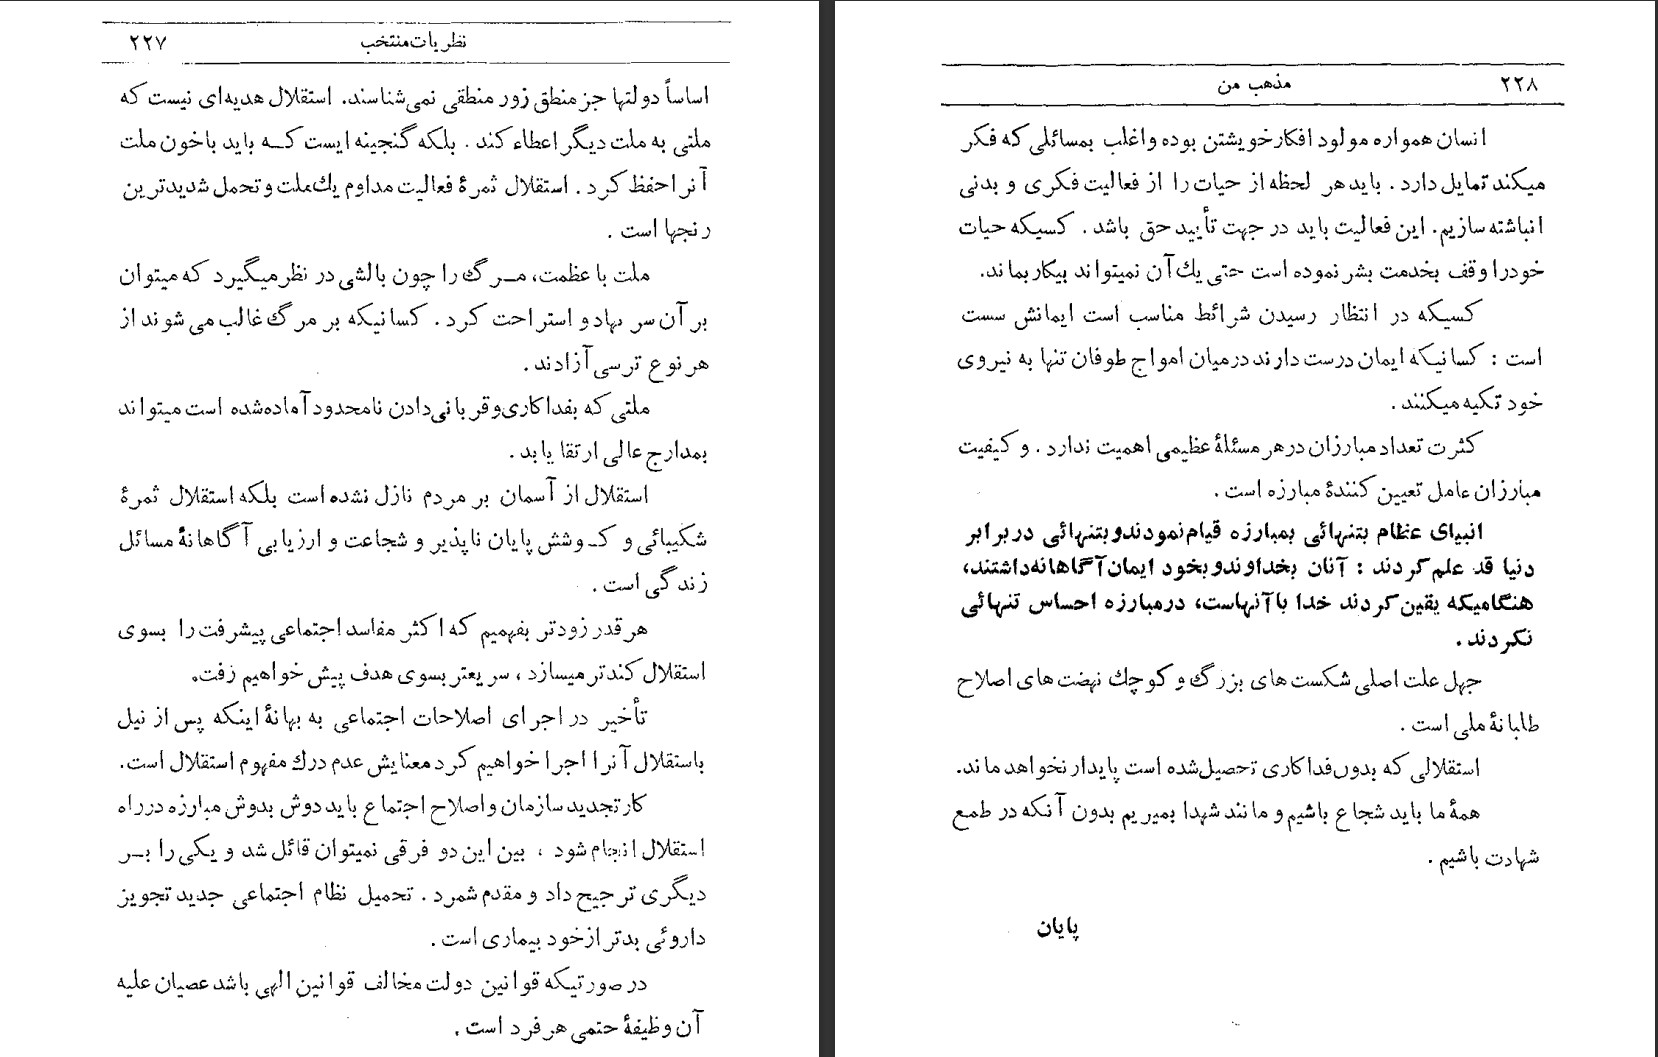 نظریات منتخب ۲۲۷
اساساً دولتها جز منطق زور منطقی نمی‌شناسند. استقلال هدیه‌ای نیست که
ملتی به ملت دیگر اعطاء کند . بلکه گنجینه ایست کـه باید باخون ملت
آنرا حفظ کرد . استقلال ثمرهٔ فعالیت مداوم یك ملت و تحمل شدیدترین
رنجها است .
ملت با عظمت، مـرگ را چون بالشی در نظر میگیرد که میتوان
بر آن سر نهاد و استراحت کرد . کسانیکه بر مرگ غالب می شوند از
هر نوع ترسی آزادند .
ملتی که بفداکاری و قربانی‌دادن نامحدود آماده‌شده است میتواند
بمدارج عالی ارتقا یابد .
استقلال از آسمان بر مردم نازل نشده است بلکه استقلال ثمرهٔ
شکیبائی و کـوشش پایان ناپذیر و شجاعت و ارزیابی آگاهانهٔ مسائل
زندگی است .
هر قدر زودتر بفهمیم که اکثر مفاسد اجتماعی پیشرفت را بسوی
استقلال کندتر میسازد ، سریعتر بسوی هدف پیش خواهیم رفت.
تأخیر در اجرای اصلاحات اجتماعی به بهانهٔ اینکه پس از نیل
باستقلال آنرا اجرا خواهیم کرد معنایش عدم درك مفهوم استقلال است.
کار تجدید سازمان و اصلاح اجتماع باید دوش بدوش مبارزه در راه
استقلال انجام شود ، بین این دو فرقی نمیتوان قائل شد و یکی را بـر
دیگری ترجیح داد و مقدم شمرد . تحمیل نظام اجتماعی جدید تجویز
داروئی بدتر از خود بیماری است .
در صورتیکه قوانین دولت مخالف قوانین الهی باشد عصیان علیه
آن وظیفهٔ حتمی هر فرد است .
۲۲۸ مذهب من
انسان همواره مولود افکار خویشتن بوده و اغلب بمسائلی که فکر
میکند تمایل دارد . باید هر لحظه از حیات را از فعالیت فکری و بدنی
انباشته سازیم. این فعالیت باید در جهت تأیید حق باشد . کسیکه حیات
خودرا وقف بخدمت بشر نموده است حتی یك آن نمیتواند بیکار بماند.
کسیکه در انتظار رسیدن شرائط مناسب است ایمانش سست
است : کسانیکه ایمان درست دارند درمیان امواج طوفان تنها به نیروی
خود تکیه میکنند .
کثرت تعداد مبارزان در هر مسئلهٔ عظیمی اهمیت ندارد . و کیفیت
مبارزان عامل تعیین کنندهٔ مبارزه است .
انبیای عظام بتنهائی بمبارزه قیام نمودند و بتنهائی در برابر
دنیا قد علم کردند : آنان بخداوند و بخود ایمان آگاهانه داشتند،
هنگامیکه یقین کردند خدا با آنهاست، در مبارزه احساس تنهائی
نکردند .
جهل علت اصلی شکست های بزرگ و کوچك نهضت های اصلاح
طلبانهٔ ملی است .
استقلالی که بدون فداکاری تحصیل شده است پایدار نخواهد ماند.
همهٔ ما باید شجاع باشیم و مانند شهدا بمیریم بدون آنکه در طمع
شهادت باشیم .
پایان